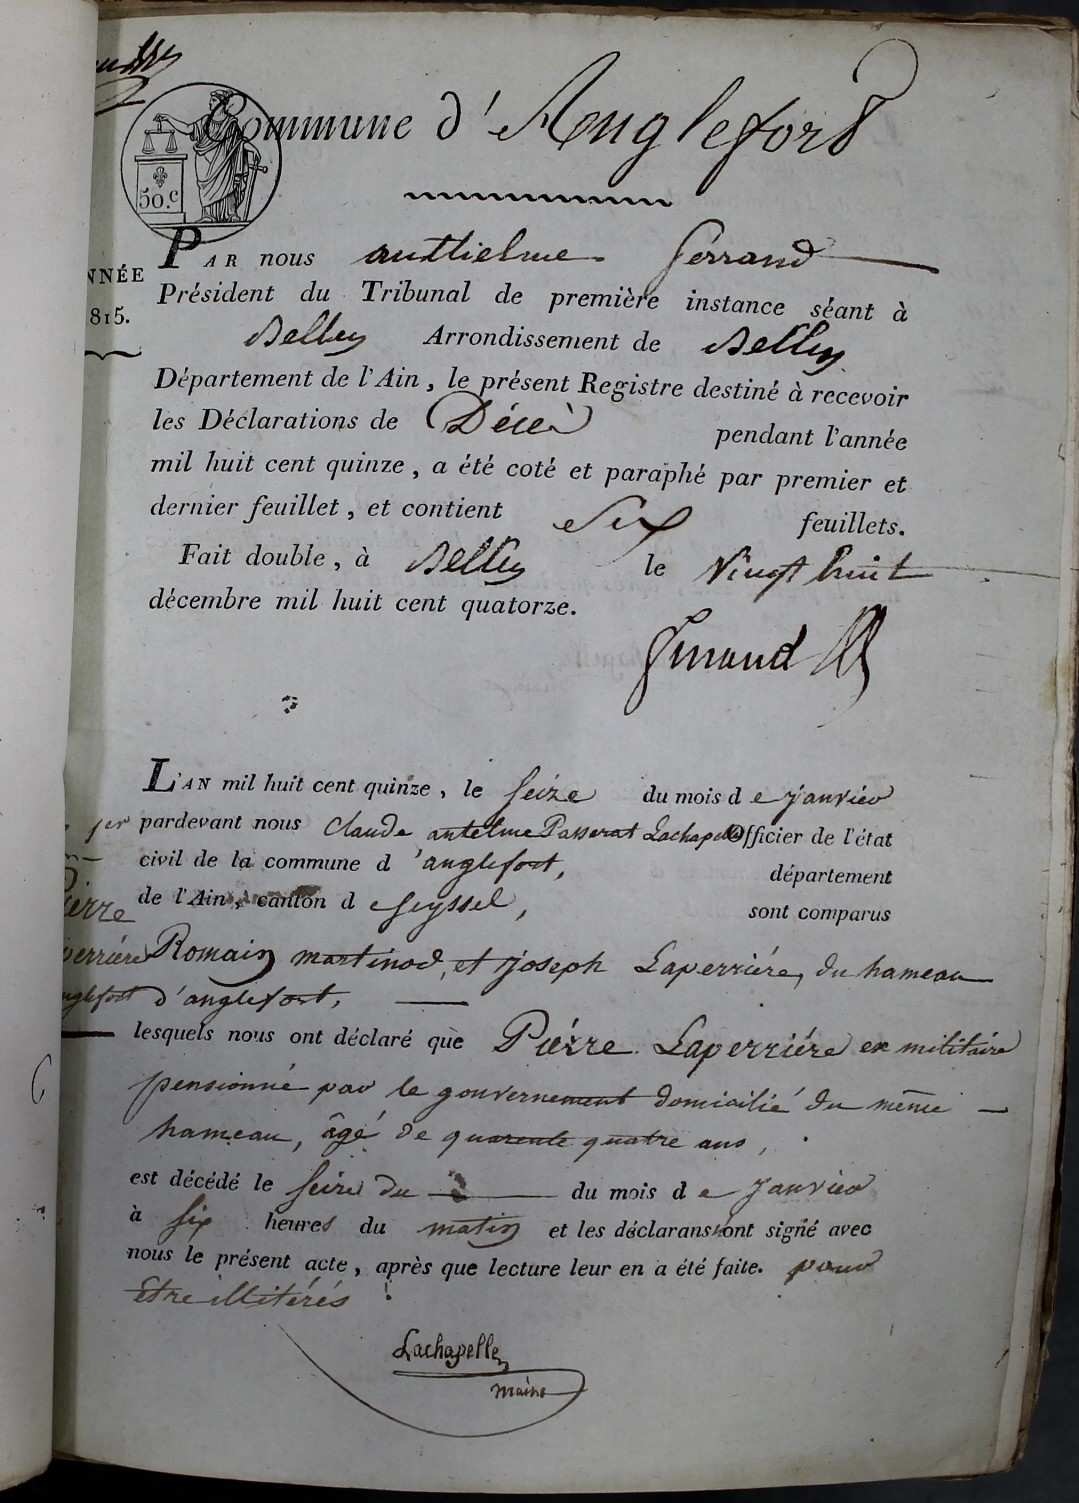 Commune d'Anglefort
50.c
PAR nous anthelme Gerrand
NNÉE
Président du Tribunal de première instance séant à
815.
Belley Arrondissement de Belley
Département de l'Ain, le présent Registre destiné à recevoir
les Déclarations de Décès pendant l'année
mil huit cent quinze, a été coté et paraphé par premier et
dernier feuillet, et contient Six feuillets.
Fait double, à Belley le Vingt huit
décembre mil huit cent quatorze.
L'AN mil huit cent quinze, le Seize du mois de janvier
1er pardevant nous Claude antelme Passerat Lachapelle Officier de l'état
civil de la commune d'anglefort, département
de l'Ain, canton de Seyssel, sont comparus
ierre
perriére Romain martinod, et joseph Laperriére, du hameau
nglefort d'anglefort,
lesquels nous ont déclaré que Piérre Laperriére ex militaire
pensionné par le gouvernement domicilié du même
hameau, âgé de quarente quatre ans,
est décédé le Seize du du mois de Janvier
à six heures du matin et les déclarans ont signé avec
nous le présent acte, après que lecture leur en a été faite. pour
Etre illitérés
Lachapelle
maire